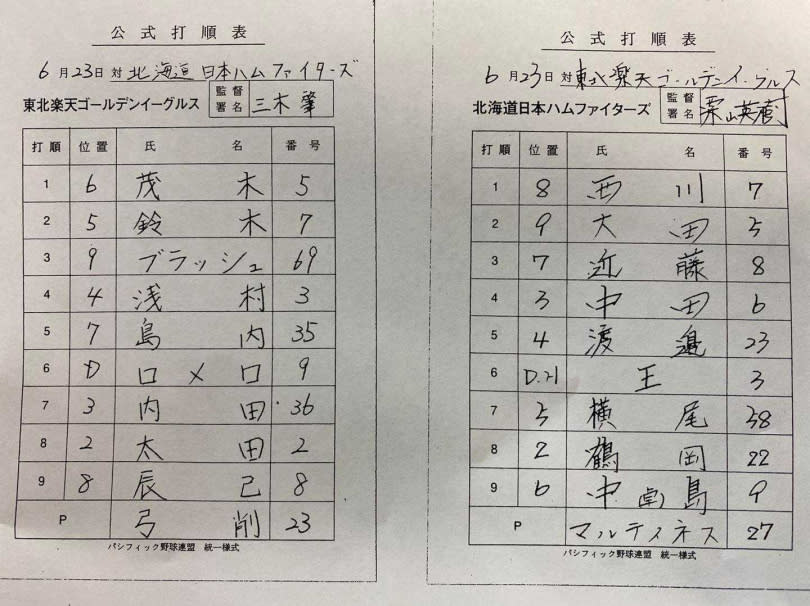 公式打順表
6月23日 対 北海道日本ハムファイターズ
東北楽天ゴールデンイーグルス 監督署名 三木肇
打順 位置 氏 名 番号
1 6 茂木 5
2 5 鈴木 7
3 9 ブラッシュ 69
4 4 浅村 3
5 7 島内 35
6 D ロメロ 9
7 3 内田 36
8 2 太田 2
9 8 辰己 8
P 弓削 23
パシフィック野球連盟 統一様式
公式打順表
6月23日 対 東北楽天ゴールデンイーグルス
北海道日本ハムファイターズ 監督署名 栗山英樹
打順 位置 氏 名 番号
1 8 西川 7
2 9 大田 5
3 7 近藤 8
4 3 中田 6
5 4 渡邉 23
6 D.21 王 3
7 5 横尾 58
8 2 鶴岡 22
9 6 中島(卓) 9
P マルティネス 27
パシフィック野球連盟 統一様式